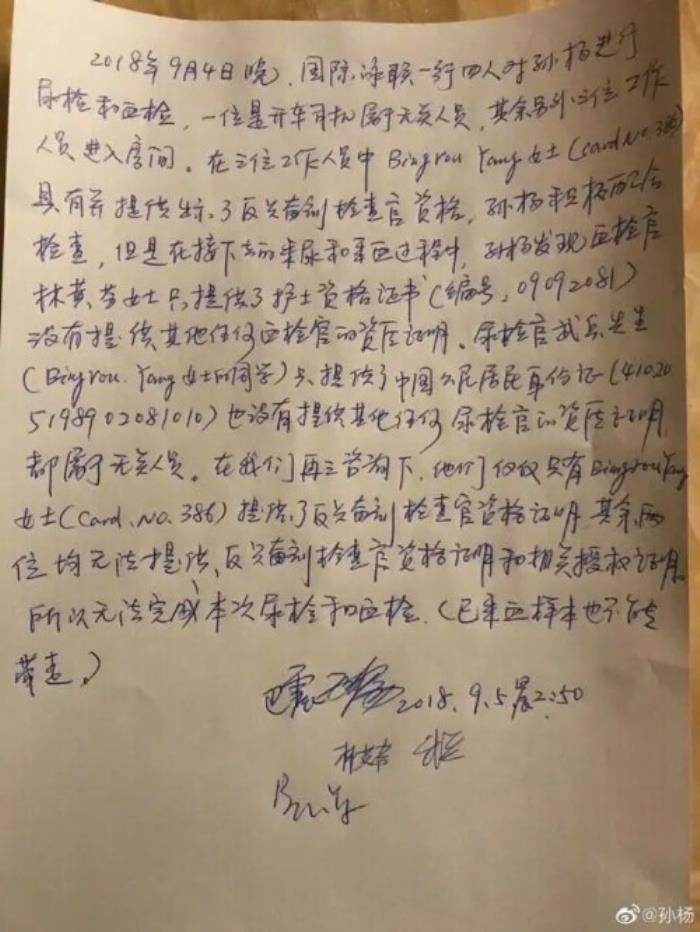 2018年9月4日晚,国际泳联一行四人对孙杨进行
尿检和血检,一位是开车司机属于无关人员,其余另外三位工作
人员进入房间。在三位工作人员中Bingrou Yang女士(card No.386)
具有并提供出示了反兴奋剂检查官资格,孙杨积极配合
检查,但是在接下去的采尿和采血过程中,孙杨发现血检官
林黄芬女士只提供了护士资格证书(编号:09092081)
没有提供其他任何血检官的资质证明。尿检官武兵先生
(Bingrou.Yang女士的同学)只提供了中国公民居民身份证(41020
5198902081010)也没有提供其他任何尿检官的资质证明
都属于无关人员。在我们再三咨询下,他们仅仅只有BingrouYang
女士(Card.No.386)提供了反兴奋剂检查官资格证明,其余两
位均无法提供反兴奋剂检查官资格证明和相关授权证明。
所以无法完成本次尿检和血检.(已采血样本也不能
带走。)
2018.9.5晨2:50
@孙杨